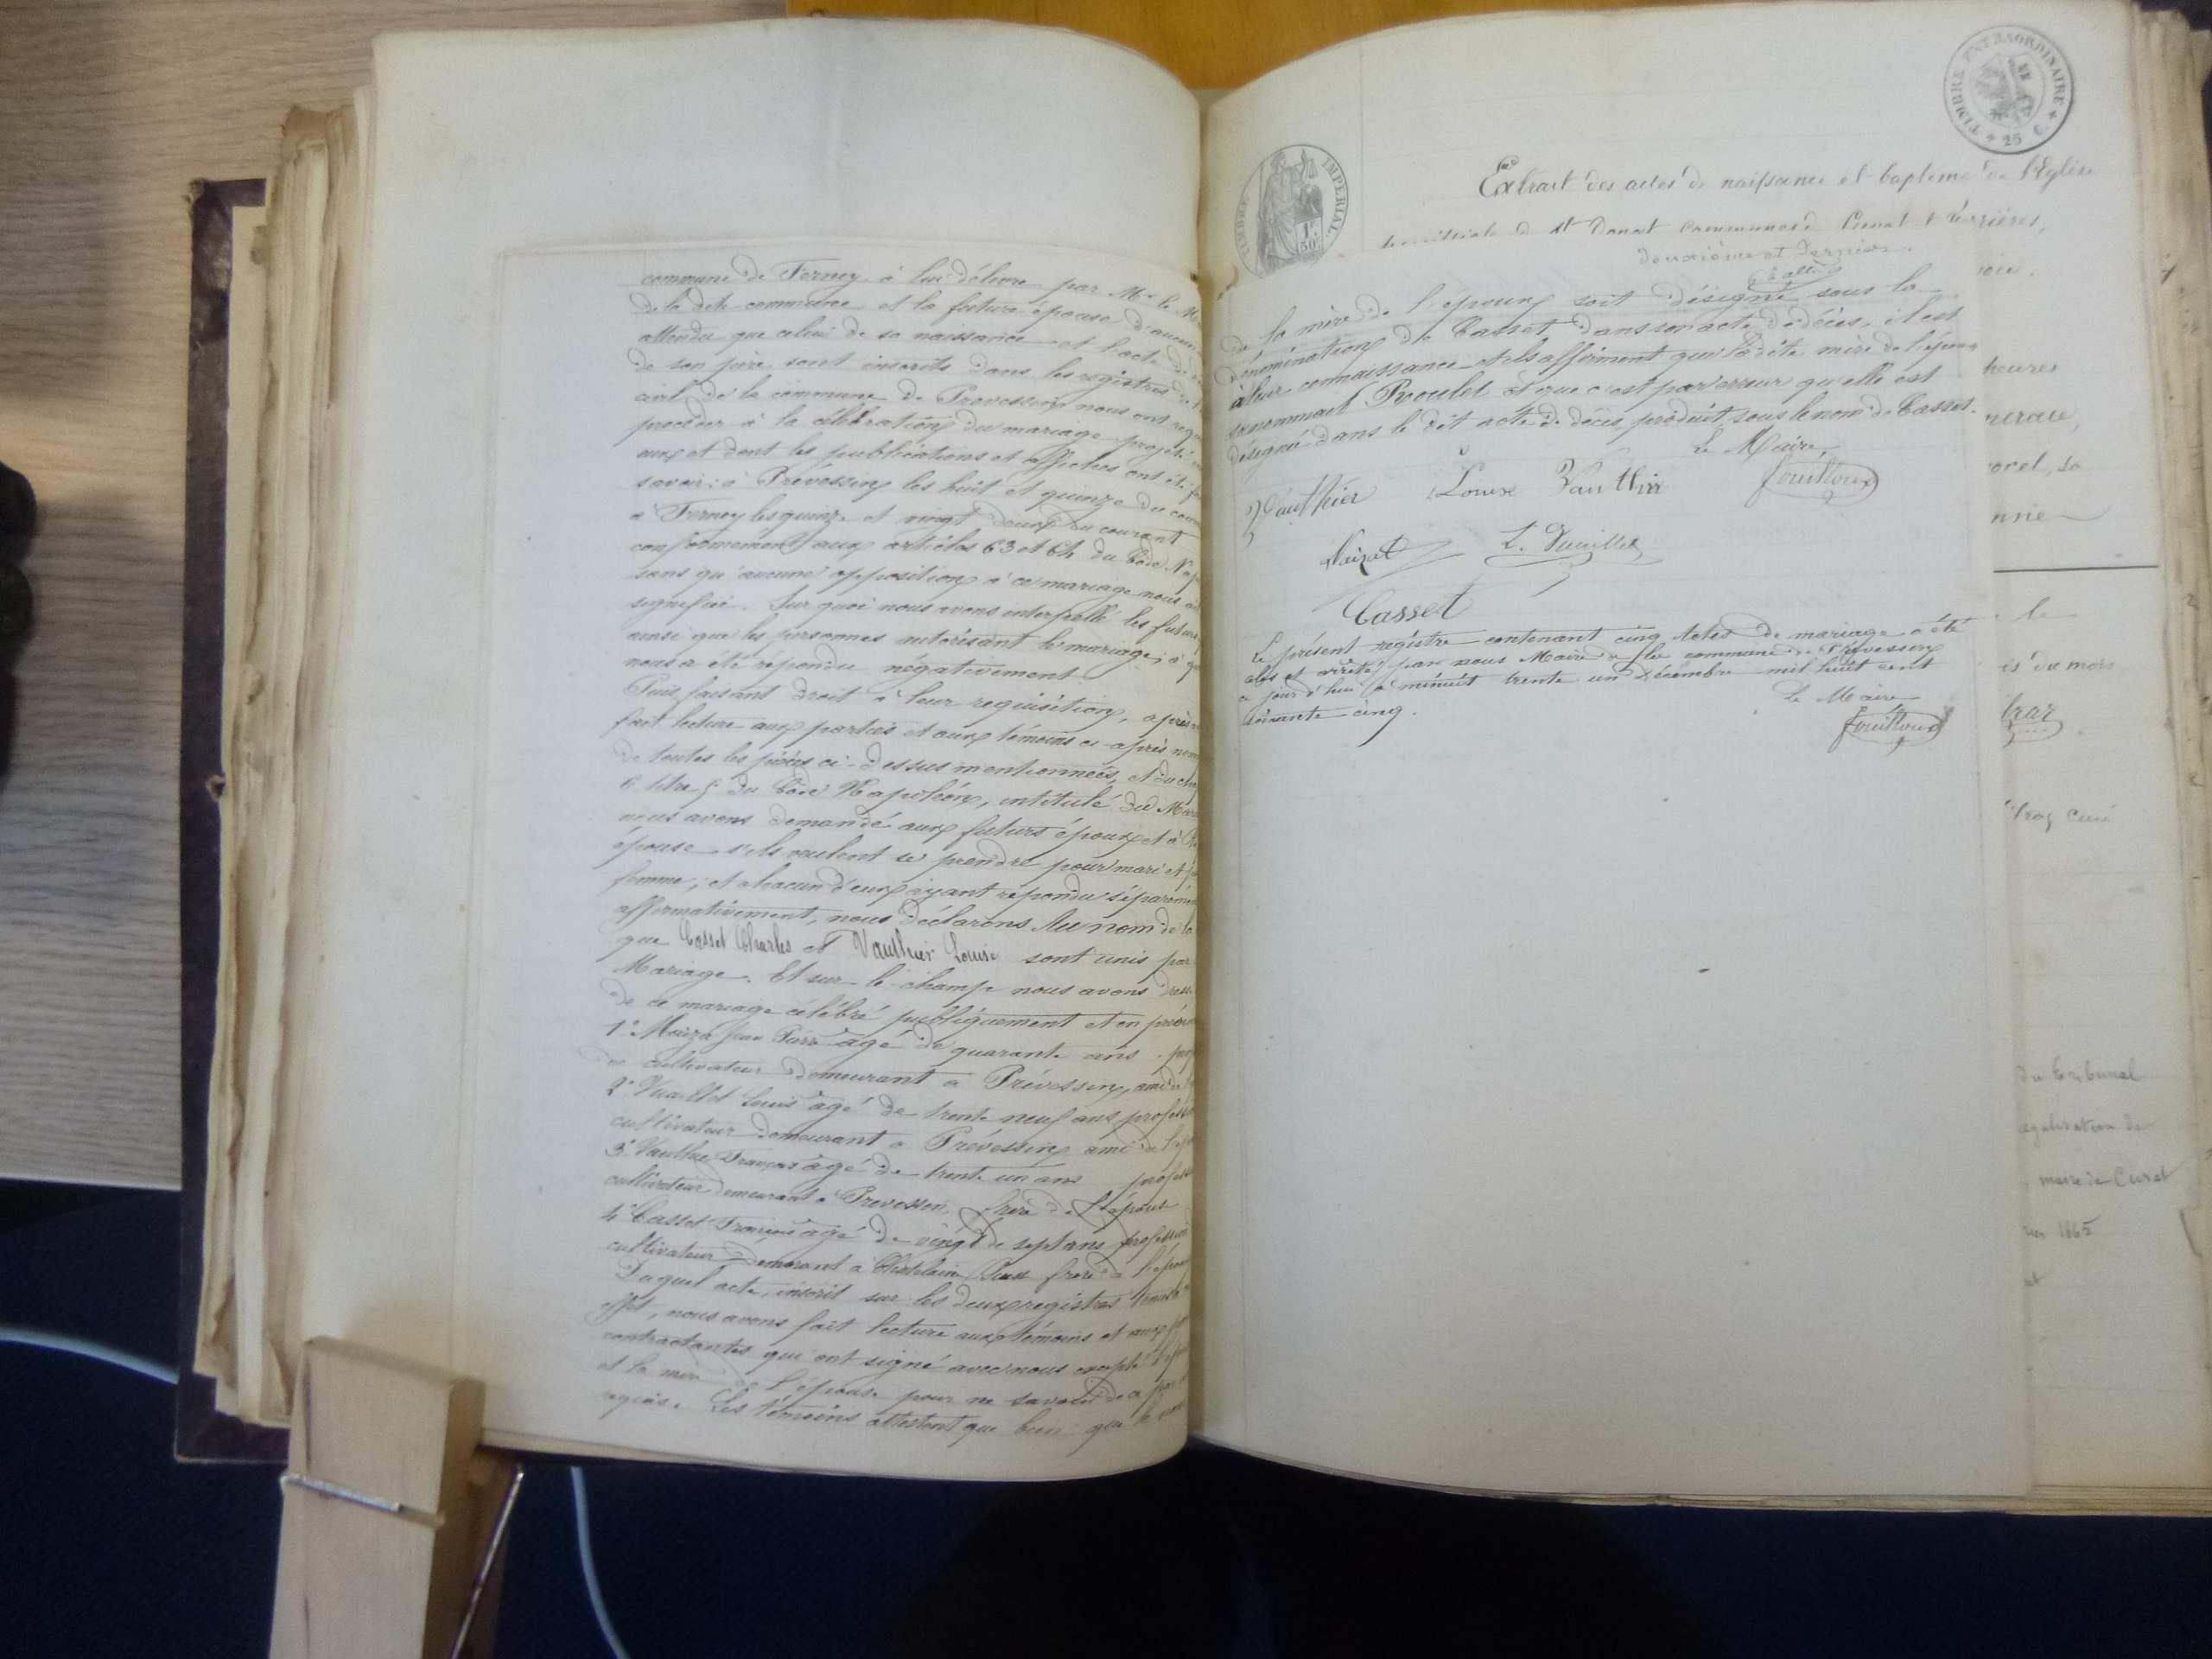 commune de Ferney à lui délivré par Mr le M
de la dite commune et la future épouse d'aucun
attendu que celui de sa naissance et l'acte de d
de son père sont inscrits dans les registres de l
civil de la commune de Prévessin nous ont requ
procéder à la célébration du mariage projeté
eux et dont les publications et affiches ont été f
savoir: à Prévessin les huit et quinze du cour
à Ferney les quinze et vingt deux du courant
conformément aux articles 63 et 64 du Code Nap
sans qu'aucune opposition à ce mariage nous ait
signifiée. Sur quoi nous avons interpellé les futurs
ainsi que les personnes autorisant le mariage; à qu
nous a été répondu négativement
Puis faisant droit à leur requisition, après
fait lecture aux parties et aux témoins ci-après nom
de toutes les pièces ci-dessus mentionnées, et du cha
6 titre 5 du Code Napoléon, intitulé du Maria
nous avons demandé aux futurs époux et à
épouse s'ils veulent se prendre pour mari et p
femme; et chacun d'eux ayant répondu séparémen
affirmativement, nous déclarons Au nom de la
que Casset Charles et Vauthier Louise sont unis par
Mariage. Et sur-le-champ nous avons dress
de ce mariage célébré publiquement et en présen
1° Jean Pierre âgé de quarante ans prof
de cultivateur demeurant à Prévessin, ami de l
2° Vuaillet Louis âgé de trente neuf ans professi
cultivateur demeurant à Prévessin ami de l'ép
3° Vauthier François âgé de trente un ans profess
cultivateur demeurant à Prévessin, frère de l'épouse
4° Casset François âgé de vingt sept ans profession
cultivateur demeurant à frère de l'épou
Duquel acte, inscrit sur les deux registres tenus à
effet, nous avons fait lecture aux témoins et aux p
contractantes qui ont signé avec nous excepté l'ép
et la mère de l'épouse pour ne savoir de ce
requis. Les témoins attestent que bien que le
TIMBRE IMPERIAL
1f
50c
TIMBRE EXTRAORDINAIRE
25
Extrait des actes de naissance et baptême de l'Eglise
de St Donat communes d
deuxième et dernier.
de la mère de l'époux soit désigné sous la
dénomination de Casset dans son acte de décès, il est
à leur connaissance et ils affirment que la dite mère de l'époux
se nommait Proulet et que c'est par erreur qu'elle est
désigné dans le dit acte de décès produit sous le nom de Casset.
Le Maire,
Vauthier Louise Vauthier Fouilloux
L. Vuaillet
Casset
Le présent registre contenant cinq Actes de mariage a été
clos et arrêté par nous Maire de la commune de Prévessin
ce jour d'hui à minuit trente un Décembre mil huit cent
soixante cinq.
Le Maire
Fouilloux
heures
orel, sa
le
es du mois
curé
du tribunal
égalisation de
maire de Curat
1865